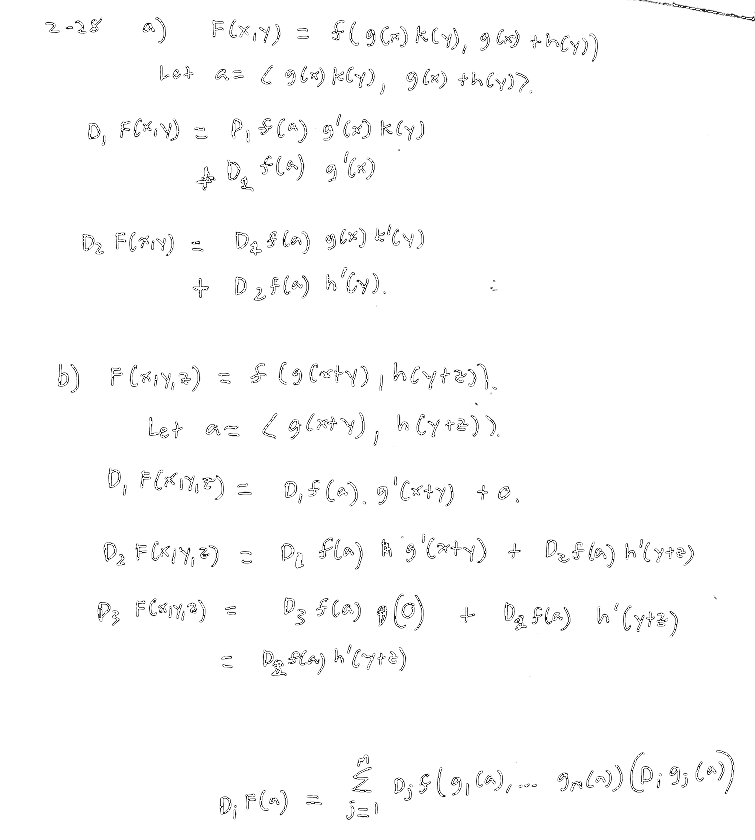 2-28 a) F(x,y) = f(g(x) k(y), g(x) + h(y))
Let a = < g(x) k(y), g(x) + h(y)>.
D₁ F(x,y) = D₁ f(a) g'(x) k(y)
+ D₂ f(a) g'(x)
D₂ F(x,y) = D₁ f(a) g(x) k'(y)
+ D₂ f(a) h'(y).
b) F(x,y,z) = f (g(x+y), h(y+z)).
Let a = < g(x+y), h(y+z)>.
D₁ F(x,y,z) = D₁ f(a). g'(x+y) + 0.
D₂ F(x,y,z) = D₁ f(a) g'(x+y) + D₂ f(a) h'(y+z)
D₃ F(x,y,z) = D₃ f(a) (0) + D₂ f(a) h'(y+z)
= D₂ f(a) h'(y+z)
Dᵢ F(a) = Σ_{j=1}^{m} Dⱼ f(g₁(a), ... gₘ(a)) (Dᵢ gⱼ(a))